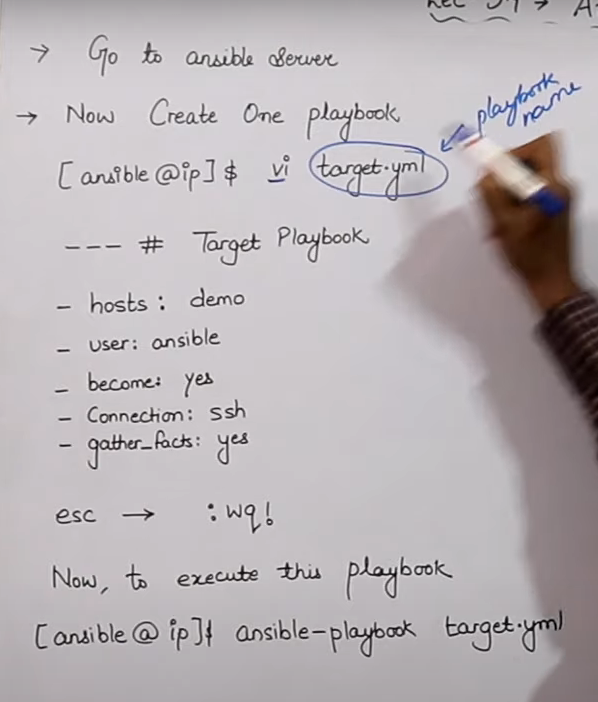 → Go to ansible Server
→ Now Create One playbook
playbook name
[ansible@ip]$ vi target.yml
--- # Target Playbook
- hosts: demo
- user: ansible
- become: yes
- Connection: ssh
- gather_facts: yes
esc → :wq!
Now, to execute this playbook
[ansible@ip]$ ansible-playbook target.yml